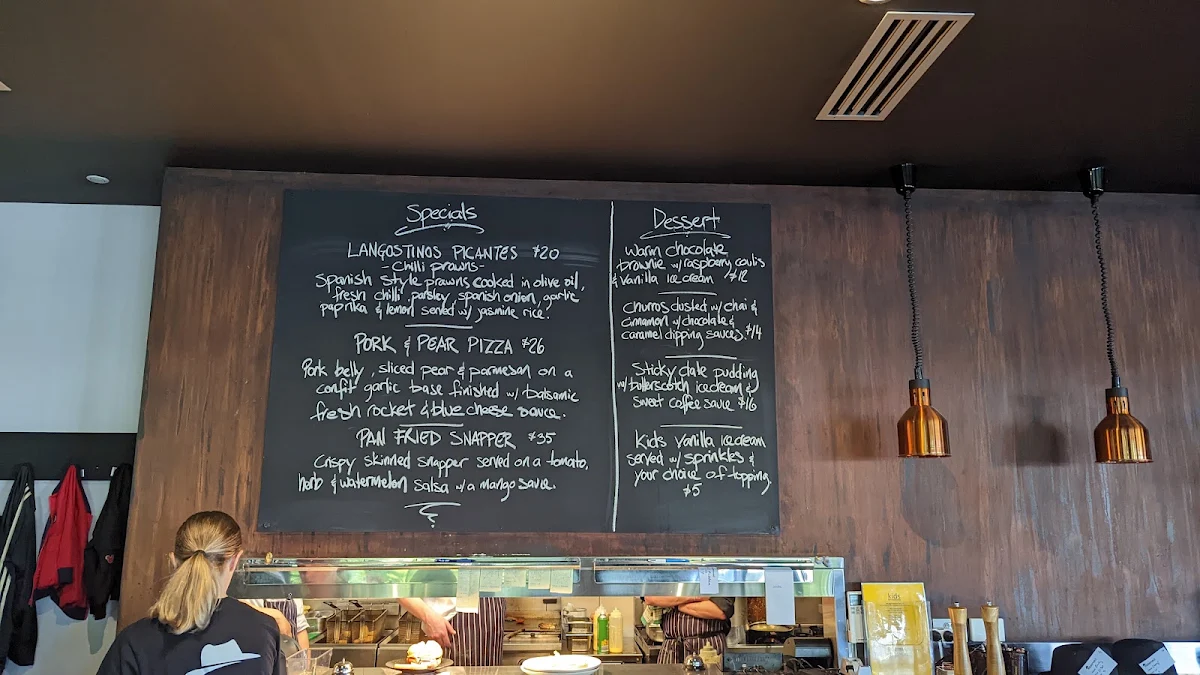 Specials
LANGOSTINOS PICANTES $20
-Chilli prawns-
Spanish style prawns cooked in olive oil,
fresh chilli, parsley, spanish onion, garlic
paprika & lemon served w/ jasmine rice.
PORK & PEAR PIZZA $26
Pork belly, sliced pear & parmesan on a
confit garlic base finished w/ balsamic
fresh rocket & blue cheese sauce.
PAN FRIED SNAPPER $35
Crispy skinned snapper served on a tomato,
herb & watermelon salsa w/ a mango sauce.
Dessert
Warm chocolate
brownie w/ raspberry coulis
& vanilla ice cream $12
Churros dusted w/ chai &
cinnamon w/ chocolate &
caramel dipping sauces. $14
Sticky date pudding
w/ butterscotch icecream &
sweet coffee sauce $16
Kids vanilla icecream
served w/ sprinkles &
your choice of topping.
$5
kids